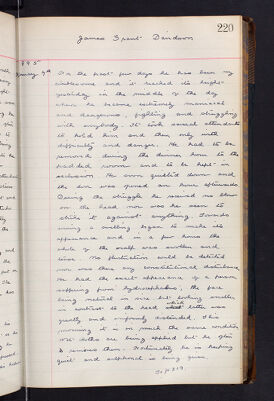 220
James Grant Davidson
895
On the past few days he has been very
troublesome and it reached its height
yesterday in the middle of the day
when he became extremely maniacal
and dangerous, fighting and struggling
with everybody. It took several attendants
to hold him and then only with
difficulty and danger. He had to be
removed during the dinner hour to the
padded room and to be kept in
seclusion. He soon quieted down and
the door was opened an hour afterwards.
During the struggle he received no blow
on the head nor was he seen to
strike it against anything. Towards
evening a swelling began to make its
appearance and in a few hours the
whole of the scalp was swollen and
tense. No fluctuation could be detected
nor was there any constitutional disturbance.
He had the exact appearance of a person
suffering from hydrocephalus, the face
being natural in size but looking smaller
in contrast to the head which latter was
greatly and uniformly distended. This
morning it is in much the same condition.
Wet cloths are being applied but he often
removes them. Fortunately he is keeping
quiet and sulphonal is being given.